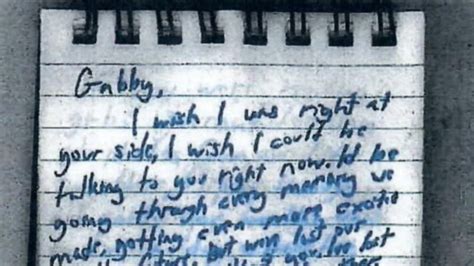 Gabby,
I wish I was right at
your side, I wish I could be
talking to you right now. I'd be
going through every memory we
made, getting even more excited
but